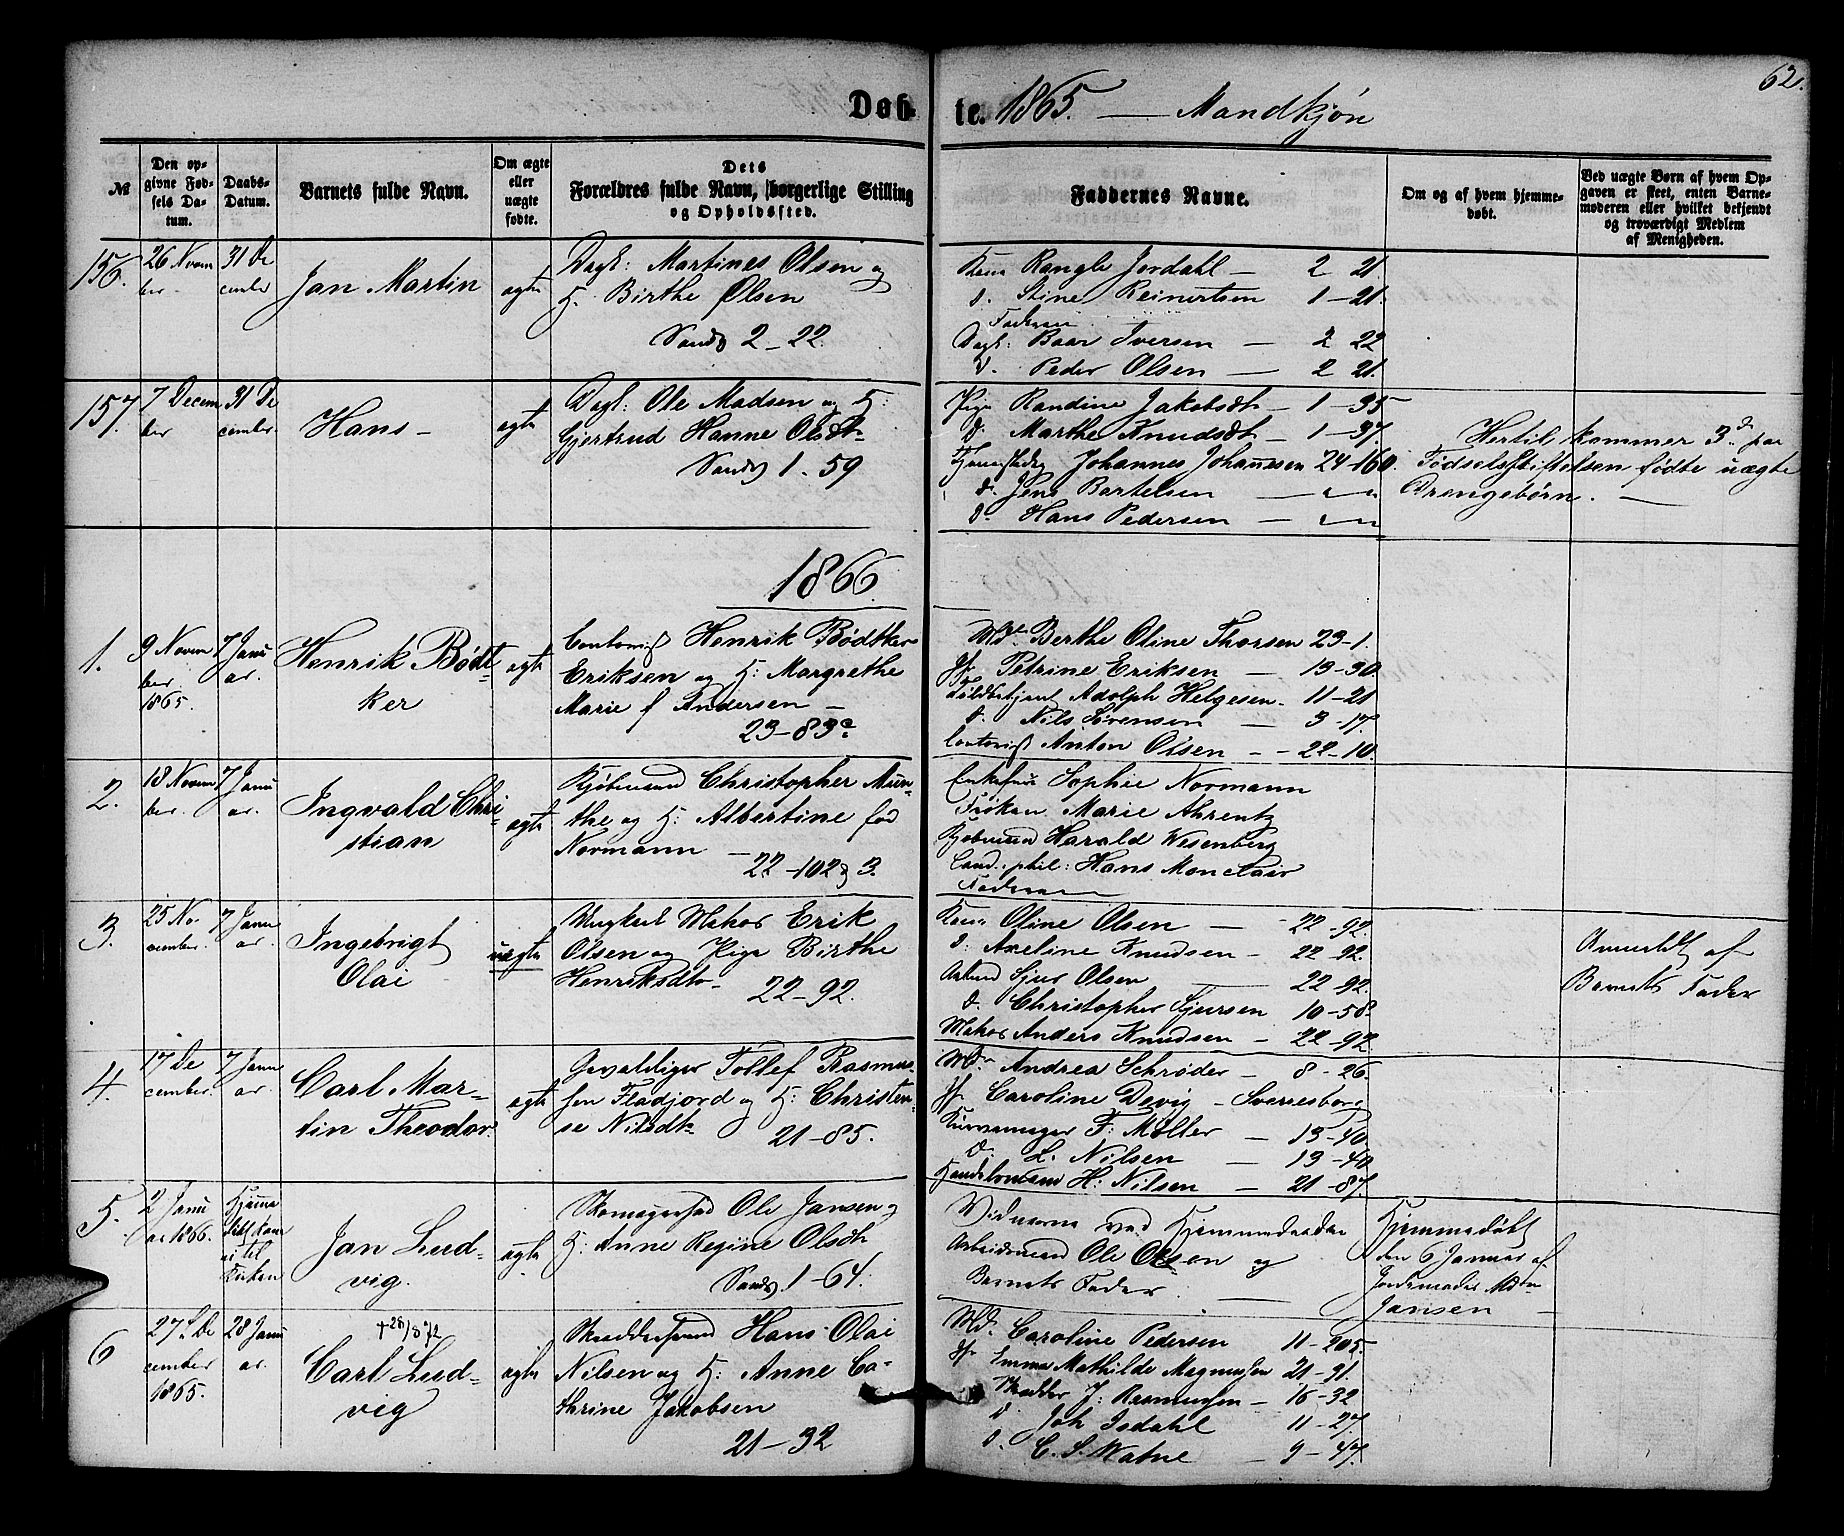 62.
Døb- te. 1865. — Mandkjøn
№
Den op-
givne Fød-
sels Da-
tum.
Daabs-
Datum.
Barnets fulde Navn.
Om ægte
eller
uægte
fødte.
Dets
Forældres fulde Navn, borgerlige Stilling
og Opholdssted.
Faddernes Navne.
Om og af hvem hjemme-
døbt.
Ved uægte Børn af hvem Op-
gaven er skeet, enten Barne-
moderen eller hvilket bekjendt
og troværdigt Medlem
af Menigheden.
156.
26 Novem
ber
31 De
cember
Jan Martin
ægte
Dagl: Martines Olsen og
H. Birthe Olsen
Sandv 2-22.
Kone Rangle Jordahl — 2 21.
d. Stine Reinertsen 1-21.
Faderen
Dagl: Baar Iversen — 2 22
d. Peder Olsen — 2 21.
157.
7 Decem
ber
31 De
cember
Hans —
ægte
Dagl: Ole Madsen og H:
Gjertrud Hanne Olsdt
Sandv 1-59
Pige Randine Jakobsdt — 1-35
d. Marthe Knudsdt — 1-37.
Johannes Johannesen 24-160.
d. Jens Bartelsen —
d. Hans Pedersen —
Hertil kommer 3de paa
Fødselsstiftelsen fødte uægte
Drengebørn. —
1866.
1.
9 Novem
ber
1865.
7 Janu
ar.
Henrik Bødt-
ker
ægte
Contorist Henrik Bødtker
Eriksen og H: Margrethe
Marie f Andersen —
23-83c
Md. Berthe Oline Thorsen 23-1.
Jf. Petrine Eriksen — 13-30.
Toldbetjent Adolph Helgesen. 11-21
d. Nils Sørensen — 3-17.
Contorist Anton Olsen — 22-10.
2.
18 Novem
ber.
7 Janu
ar.
Ingvald Chri-
stian
ægte
Kjøbmand Christopher Mun-
the og H: Albertine fød
Normann —
22-102 & 3.
Enkefrue Sophie Normann
Frøken Marie Ahrentz
Kjøbmand Harald Wesenberg
Cand. phil: Hans Monclair
Faderen
3.
25 No-
vember.
7 Janu
ar.
Ingebrigt
Olai
uægte
Ungkarl Matros Erik
Olsen og Pige Birthe
Henriksdtr
22-92.
Kone Oline Olsen — 22-92.
d. Axeline Knudsen — 22-92.
Arbmd Sjur Olsen 22-92.
d. Christopher Sjursen 10-58.
Matros Anders Knudsen — 22-92.
Anmeldt af
Barnets Fader
4.
17 De
cember.
7 Janu
ar.
Carl Mar-
tin Theodor.
ægte
Gevaldiger Tollef Rasmus-
sen Fladjord og H: Christen-
se Nilsdt.
21-85.
Md. Andrea Schrøder — 8-26.
Jf. Caroline Devig — Sverresborg
F. Møller — 13-40.
d. L. Nilsen — 13-40
H: Nilsen — 21-87.
5.
2 Janu
ar 1866.
Hjemme
døbt kom
ei til
Kirken
Jan Lud-
vig.
ægte
Skomagersvd Ole Jansen og
H: Anne Regine Olsdt
Sandv 1-64.
Vidnerne ved Hjemmedaaben
Arbeidsmand Ole Olsen og
Barnets Fader.
Hjemmedøbt
den 6 Januar af
Jordemoder Mdm
Jansen —
6
27 De
cember
1865.
28 Janu
ar.
+ 28/3 72
Carl Lud-
vig
ægte
Skræddersvend Hans Olai
Nilsen og H: Anne Ca-
thrine Jakobsen
21-32
Md. Caroline Pedersen 11-205.
Jf. Emma Mathilde Magnussen 21-31.
Skrædder J: Rasmussen — 16-32
d. Joh Isdahl 11-27.
d. C. S. Watne — 9-47.